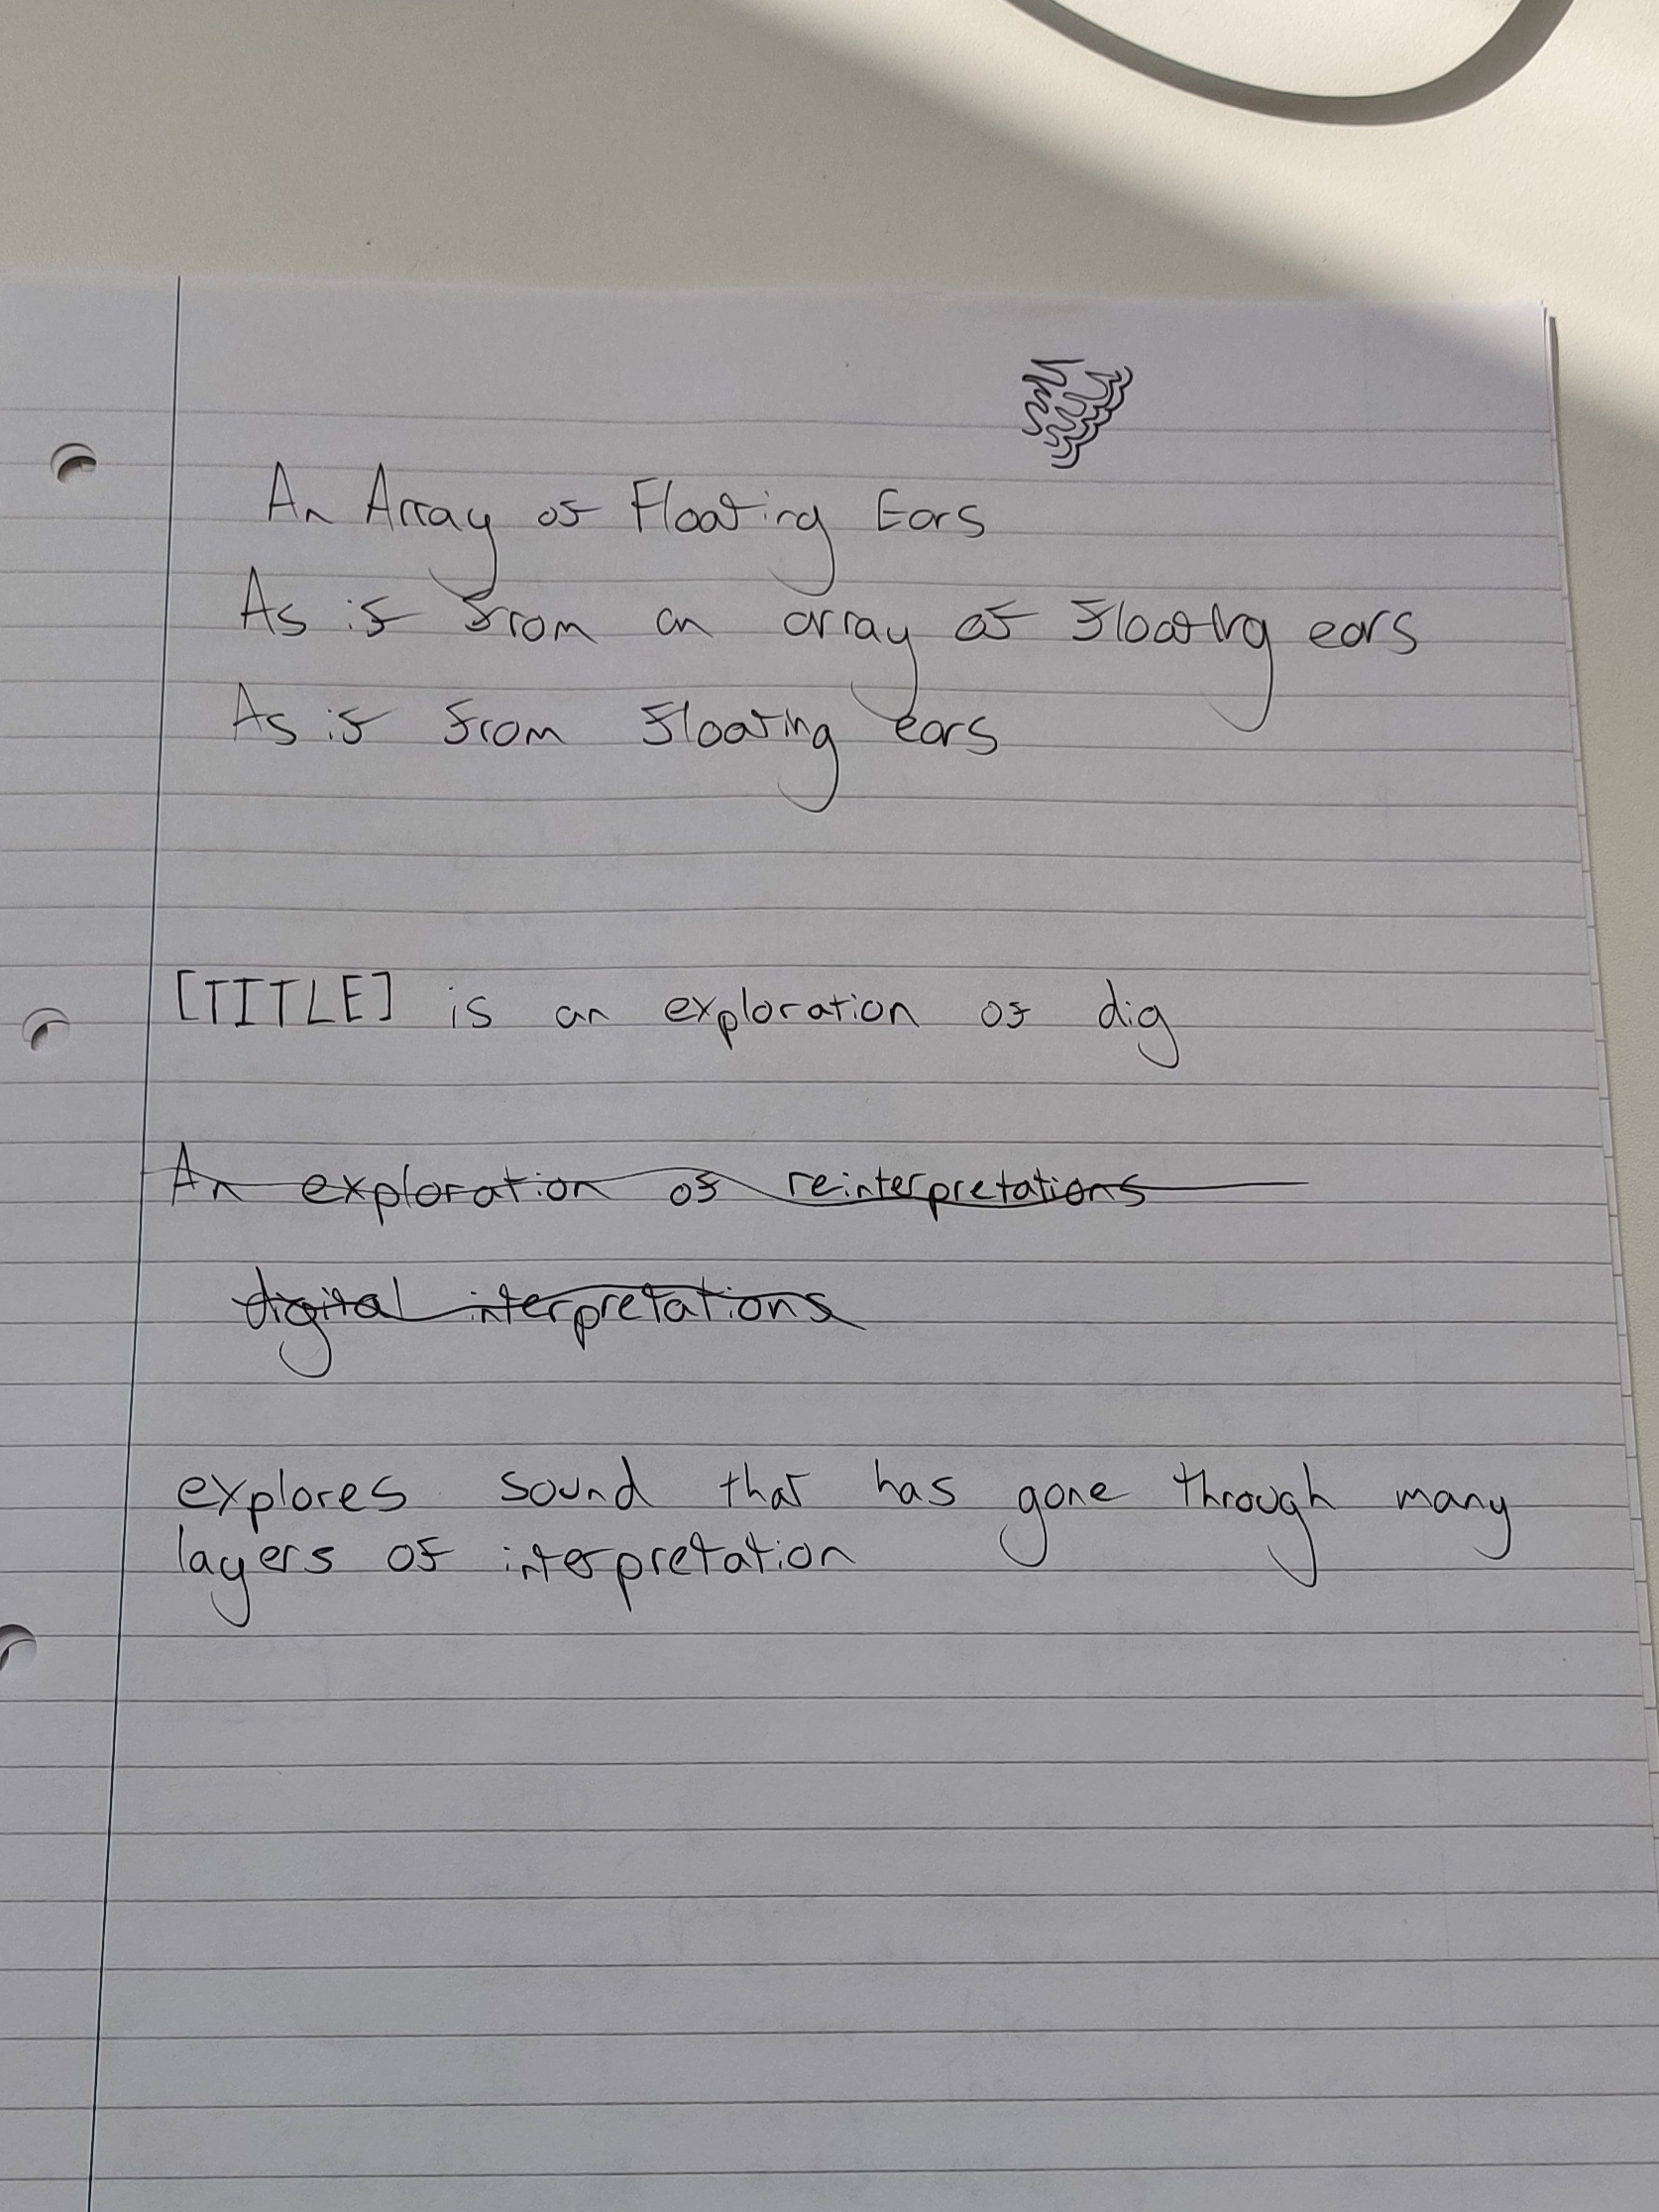 An Array of Floating Ears
As if from an array of floating ears
As if from floating ears
[TITLE] is an exploration of dig
An exploration of reinterpretations
digital interpretations
explores sound that has gone through many
layers of interpretation